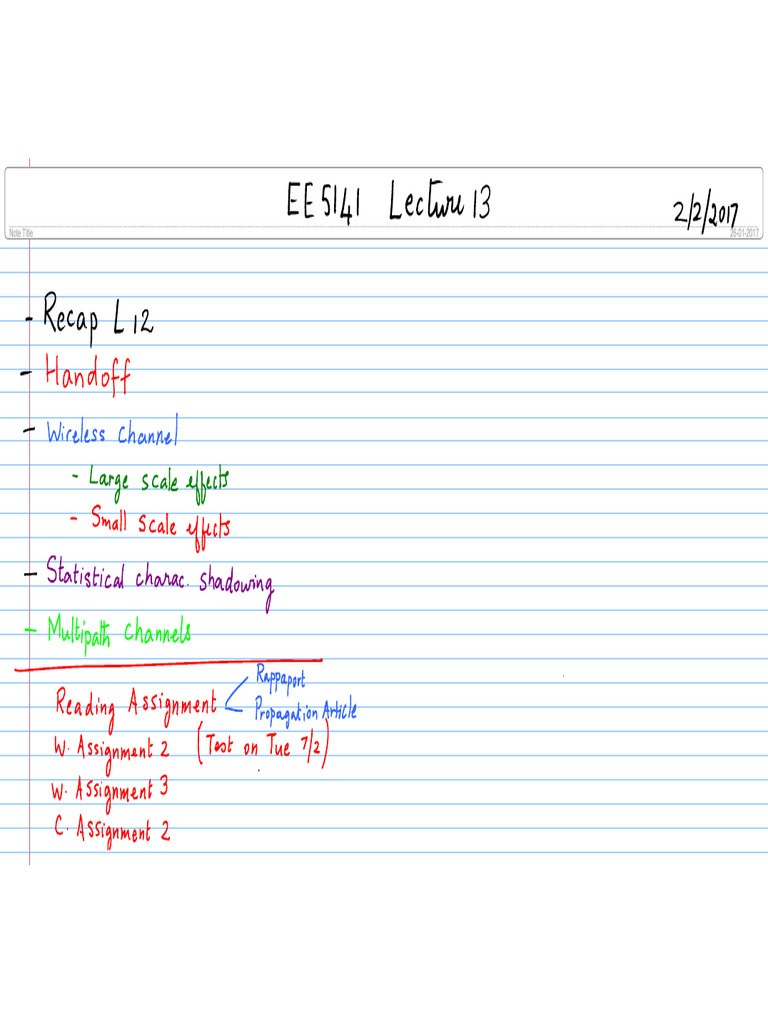 EE5141 Lecture 13
2/2/2017
Note Title
26-01-2017
- Recap L12
- Handoff
- Wireless Channel
- Large scale effects
- Small scale effects
- Statistical charac. shadowing
- Multipath channels
Reading Assignment
Rappaport
Propagation Article
W. Assignment 2 (Test on Tue 7/2)
W. Assignment 3
C. Assignment 2